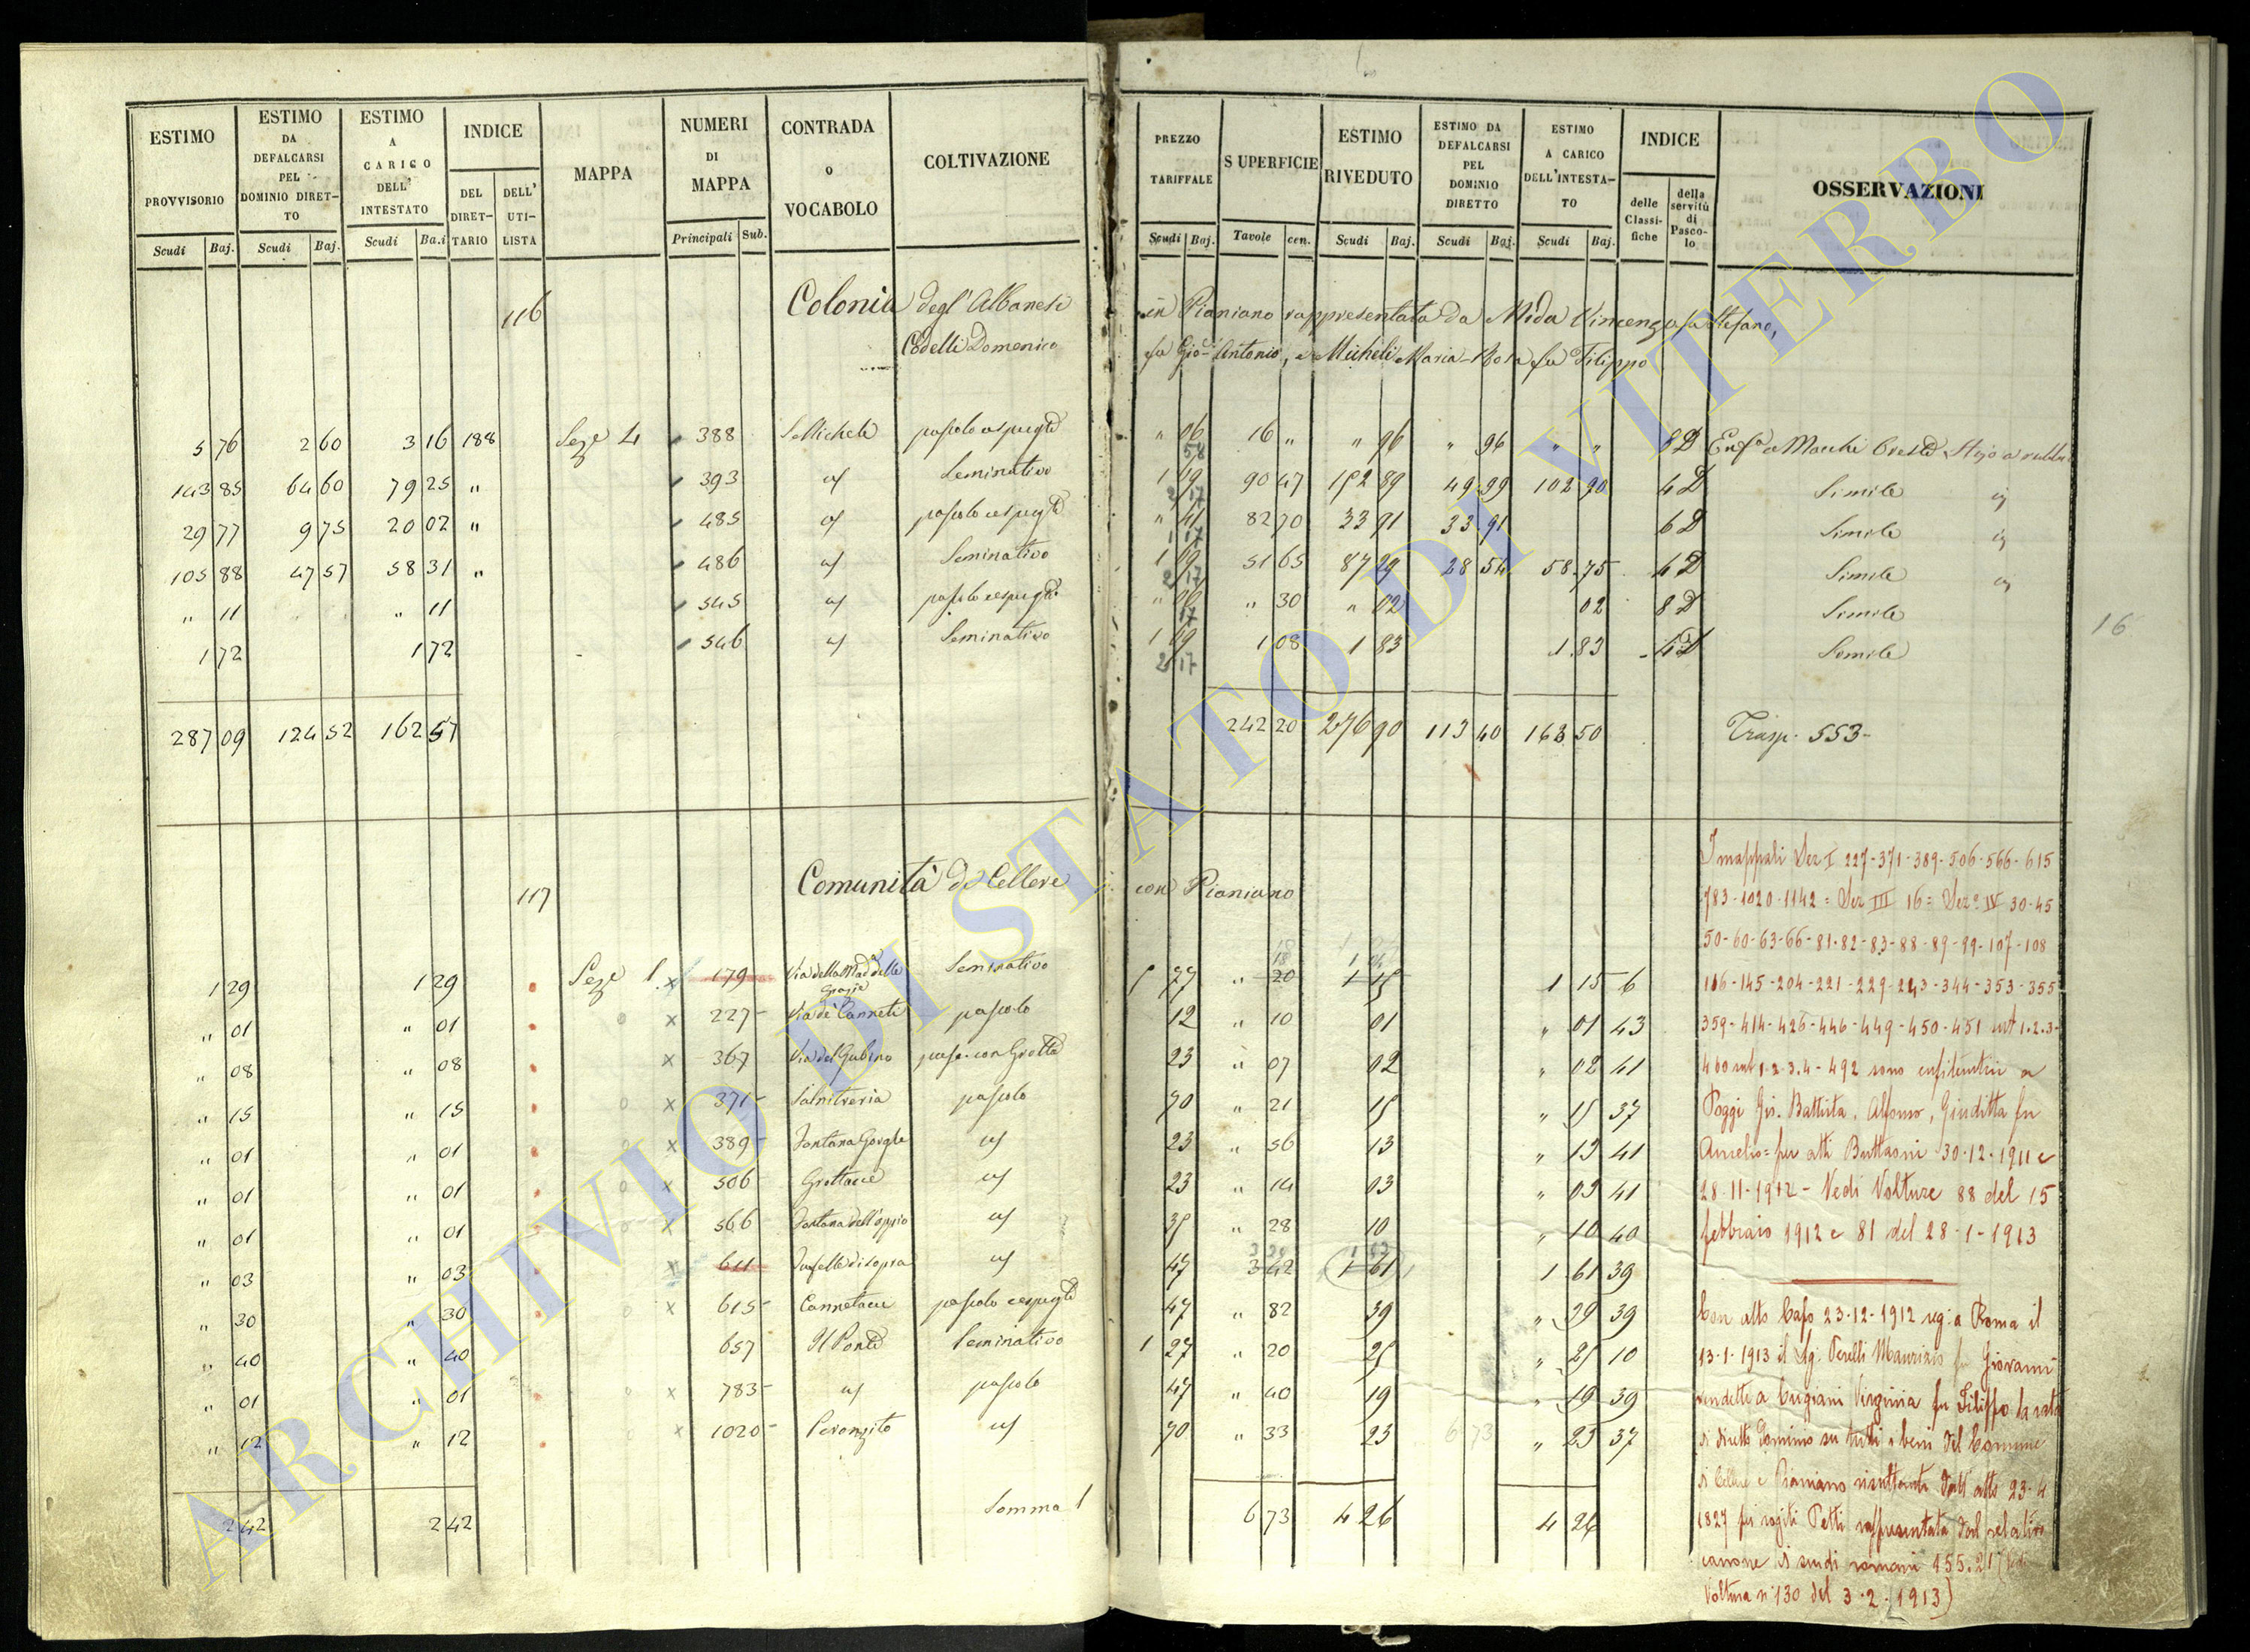 ESTIMO PROVVISORIO
ESTIMO DA DEFALCARSI PEL DOMINIO DIRET-TO
ESTIMO A CARICO DELL' INTESTATO
INDICE
DEL DIRET-TARIO
DELL' UTI-LISTA
MAPPA
NUMERI DI MAPPA
CONTRADA o VOCABOLO
COLTIVAZIONE
PREZZO TARIFFALE
SUPERFICIE
ESTIMO RIVEDUTO
ESTIMO DA DEFALCARSI PEL DOMINIO DIRETTO
ESTIMO A CARICO DELL'INTESTA-TO
INDICE
delle Classi-fiche
della servitù di Pasco-lo
OSSERVAZIONI
Scudi Baj. Scudi Baj. Scudi Ba.i Principali Sub.
Scudi Baj. Tavole cen. Scudi Baj. Scudi Baj. Scudi Baj.
116 Colonia degl'Albanesi in Pianiano rappresentata da Mida Vincenzo fu Stefano,
Codelli Domenico fu Gio: Antonio, e Micheli Maria-Rosa fu Filippo
5 76 2 60 3 16 188 Seze 4 388 S. Michele pascolo cespugto " 06 16 " " 96 " 96 " " 8 D
58
143 85 64 60 79 25 " 393 Seminativo 1 69 90 47 152 89 49 99 102 90 4 D Simile
2 17
29 77 9 75 20 02 " 485 pascolo cespugto " 41 82 70 33 91 33 91 6 D Simile
1 17
105 88 47 57 58 31 " 486 Seminativo 1 69 51 65 87 29 28 54 58 75 4 D Simile
2 17
" 11 " 11 545 pascolo cespugto " 06 " 30 " 02 02 8 D Simile
17
1 72 1 72 546 Seminativo 1 69 1 08 1 83 1 83 4 D Simile
2 17
287 09 124 52 162 57 242 20 276 90 113 40 163 50 Trasp. 553-
16
117 Comunità di Cellere con Pianiano
1 29 1 29 Seze 1 x 179 Via della Mada delle Grazie Seminativo 77 " 20 1 15 1 15 6
" 01 " 01 x 227- Via de' Canneti pascolo 12 " 10 01 " 01 43
" 08 " 08 x 367 Via del Gubino pasc. con Grotta 23 " 07 02 " 02 41
" 15 " 15 x 371- Salnitreria pascolo 70 " 21 15 " 15 37
" 01 " 01 x 389- Fontana 23 " 56 13 " 13 41
" 01 " 01 x 506- Grottacce 23 " 14 03 " 03 41
" 01 " 01 x 566 Fontana dell'oppio 35 " 28 10 " 10 40
" 03 " 03 x 611 di sopra 47 3 42 1 61 1 61 39
" 30 " 30 x 615- Cannetacce pascolo cespugto 47 " 82 39 " 39 39
" 40 " 40 657 Il Ponte Seminativo 1 27 " 20 25 " 25 10
" 01 " 01 x 783- pascolo 47 " 40 19 " 19 39
" 12 " 12 x 1020- Peronzito 70 " 33 23 6 73 " 23 37
2 42 2 42 Somma 1 6 73 4 26 4 26
I mappali Sez I 227-371-389-506-566-615
783-1020-1142= Sez III 16= Seze IV 30-45
50-60-63-66-81-82-83-88-89-99-107-108
116-145-204-221-229-243-344-353-355
359-414-426-446-449-450-451 sub 1.2.3-
460 sub 1.2.3.4- 492 sono enfiteutici a
Poggi Gio. Battista, Alfonso, Giuditta fu
Aurelio= per atti Buttaoni 30-12-1911 e
28-11-1912- Vedi Volture 88 del 15
febbraio 1912 e 81 del 28-1-1913
Con atto 23-12-1912 reg: a Roma il
13-1-1913 il Sig: Perelli Maurizio fu Giovanni
vendette a Virginia fu Filippo la rata
di diretto Dominio su tutti i beni del Comune
di Cellere e Pianiano risultante dall'atto 23-4
1827 per rogiti Petti rappresentata dal relativo
canone di scudi romani 155.21
Voltura n: 130 del 3-2-1913)
ARCHIVIO DI STATO DI VITERBO